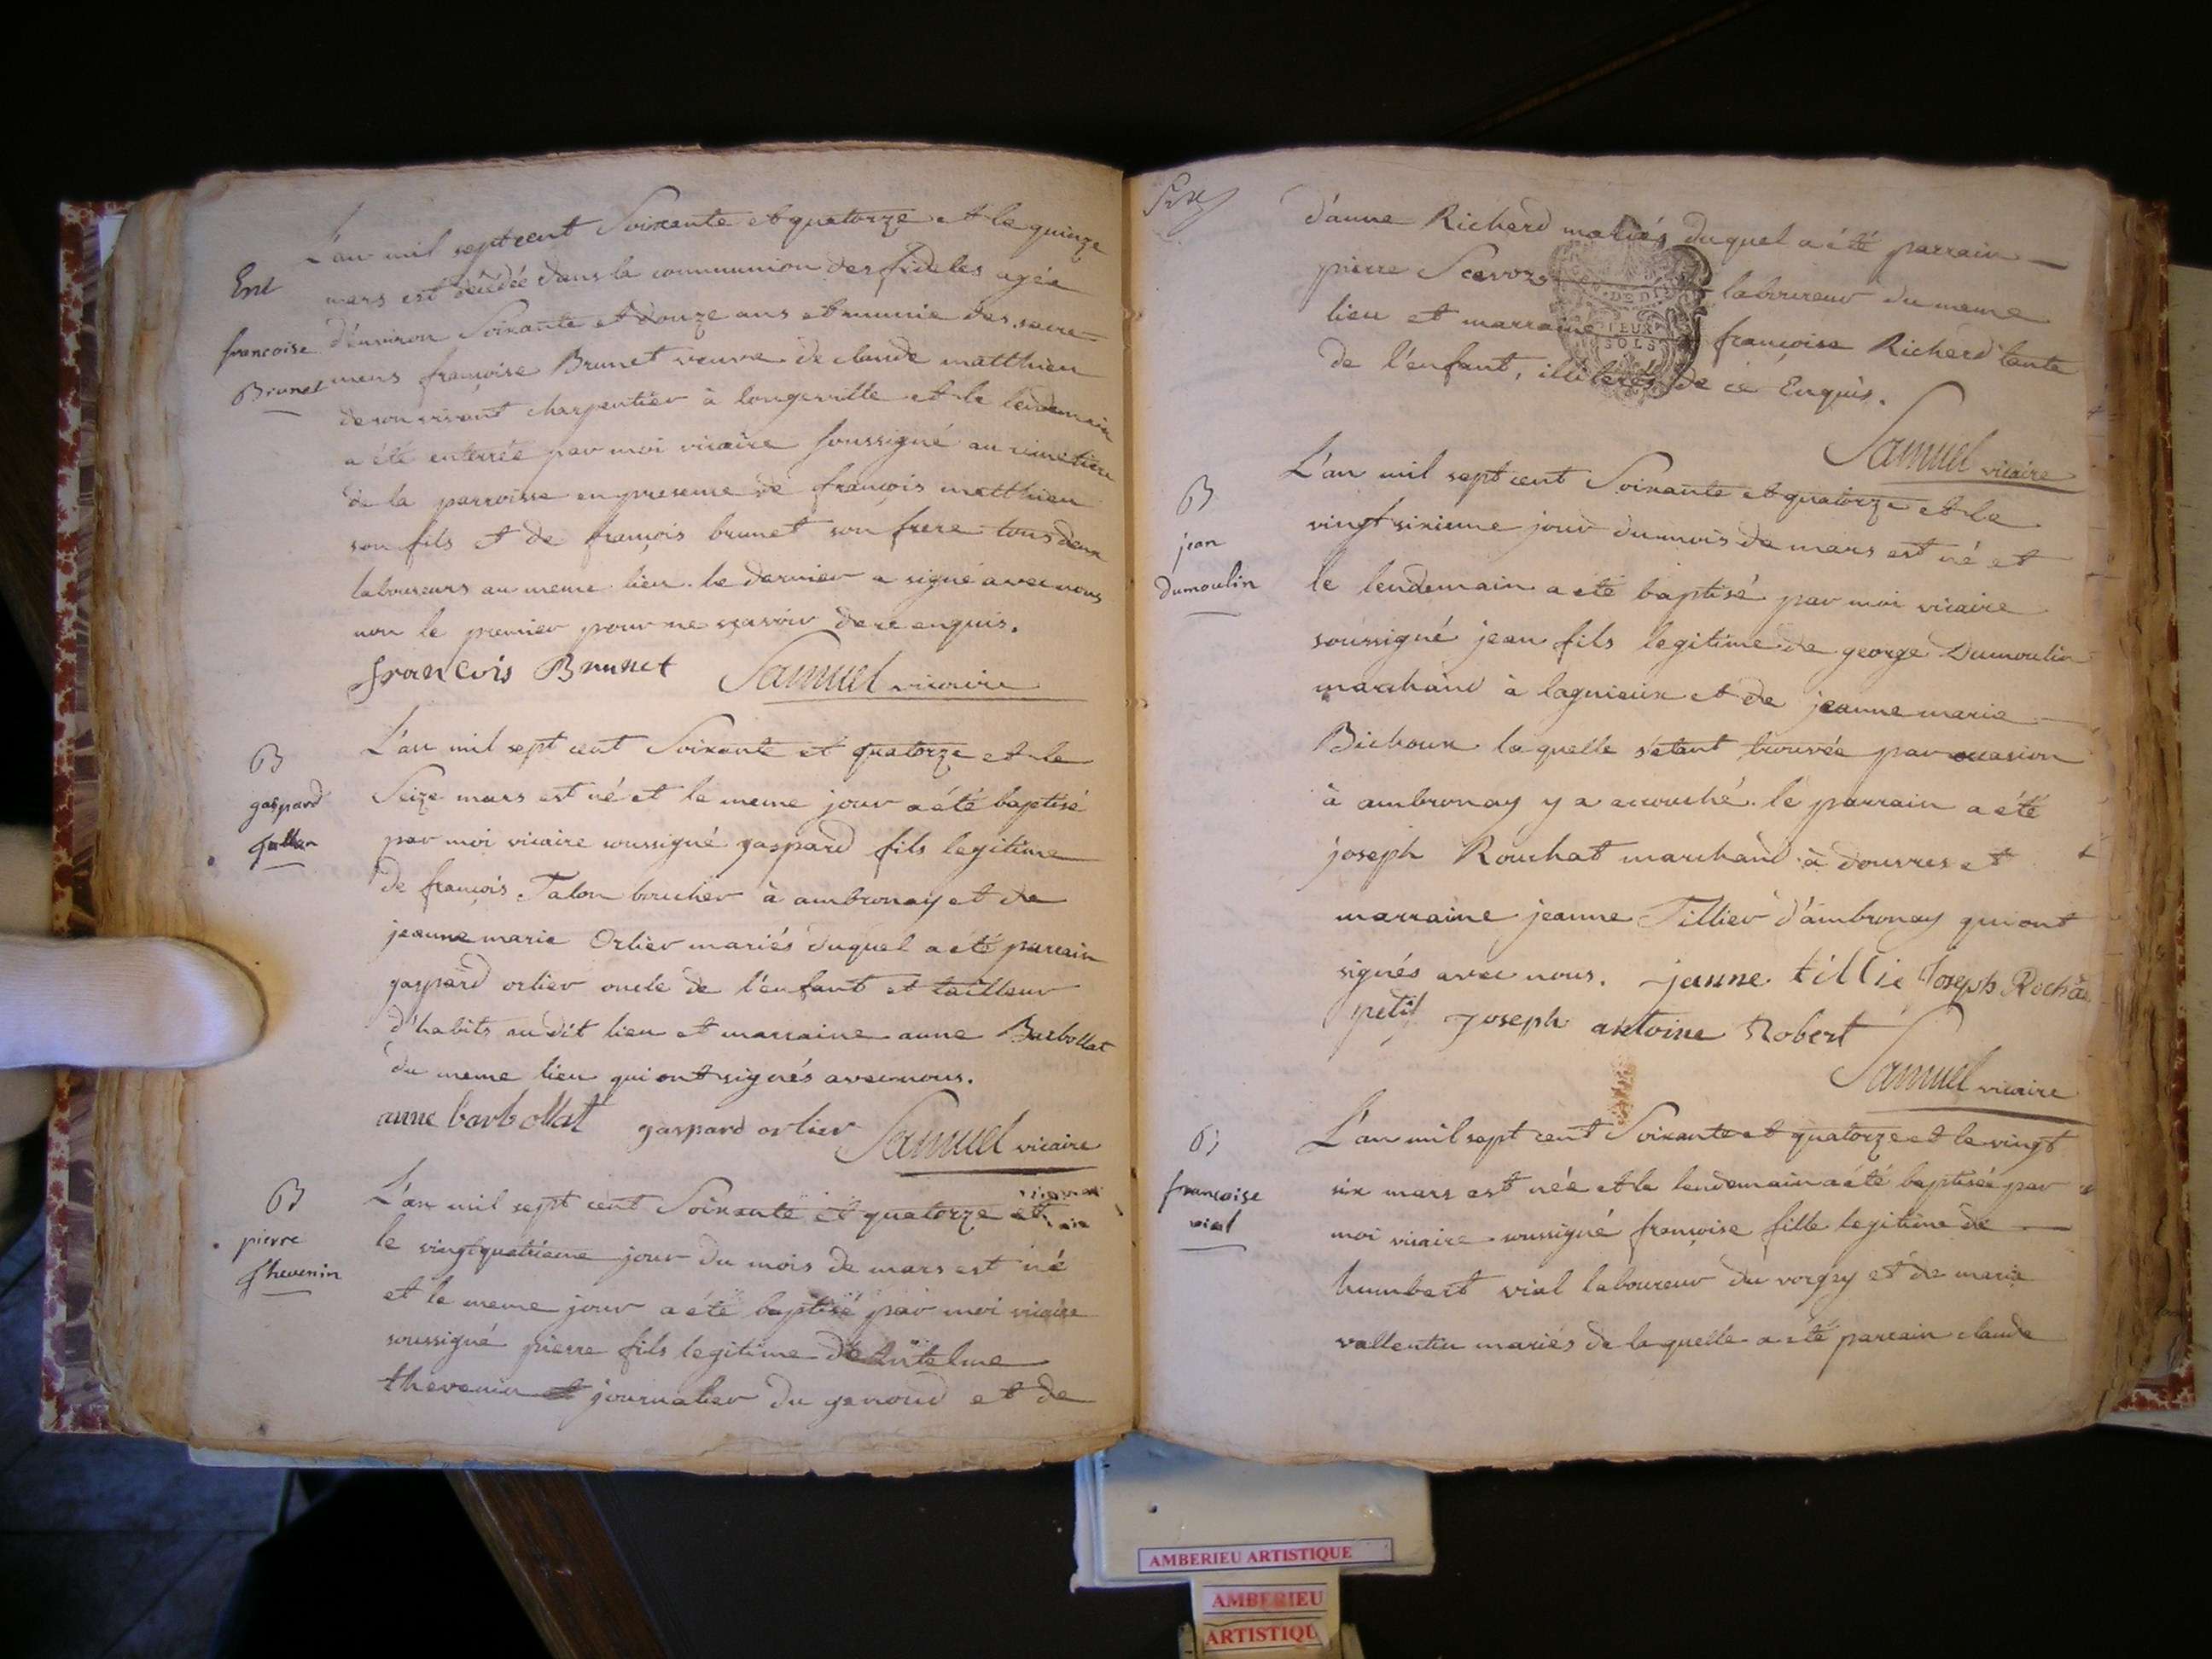 L'an mil sept cent Soixante et quatorze et le quinze
Ent
mars est décédée dans la communion des fideles agée
francoise
d'environ Soixante et douze ans et munie des sacre-
Brunet
mens françoise Brunet veuve de claude matthieu
de son vivant charpentier à longeville et le lendemain
a été enterrée par moi vicaire soussigné au cimetiere
de la parroisse en presence de françois matthieu
son fils et de françois brunet son frere tous deux
laboureurs au meme lieu. le dernier a signé avec nous
non le premier pour ne sçavoir de ce enquis.
francois Brunet Samuel vicaire
B
gaspard
L'an mil sept cent Soixante et quatorze et le
Seize mars est né et le meme jour a été baptisé
par moi vicaire soussigné gaspard fils legitime
de françois Talon boucher à ambronay et de
jeanne marie Orlier mariés duquel a été parrain
gaspard orlier oncle de l'enfant et tailleur
d'habits audit lieu et marraine anne Barbollat
du meme lieu qui ont signés avec nous.
anne barbollat gaspard orlier Samuel vicaire
B
pierre
thevenin
L'an mil sept cent Soixante et quatorze et
le vingt quatrieme jour du mois de mars est né
et le meme jour a été baptisé par moi vicaire
soussigné pierre fils legitime d'Antelme
thevenin journalier du genoud et de
d'anne Richerd mariés duquel a été parrain
pierre Scevoz laboureur du meme
lieu et marraine françoise Richerd tante
de l'enfant, illiterés de ce Enquis.
Samuel vicaire
B
jean
dumoulin
L'an mil sept cent Soixante et quatorze et le
vingt sixieme jour du mois de mars est né et
le lendemain a été baptisé par moi vicaire
soussigné jean fils legitime de george Dumoulin
marchand à lagnieux et de jeanne marie
Bichoux laquelle s'etant trouvée par ocasion
à ambronay y a accouché. le parrain a été
joseph Rouchat marchand à douvres et
marraine jeanne Tillier d'ambronay qui ont
signés avec nous. jeanne tillie Joseph Rocha
petit joseph antoine Robert
Samuel vicaire
B
francoise
vial
L'an mil sept cent Soixante et quatorze et le vingt
six mars est née et le lendemain a été baptisée par
moi vicaire soussigné françoise fille legitime de
humbert vial laboureur du vorgey et de marie
vallentin mariés de laquelle a été parrain claude
AMBERIEU ARTISTIQUE
AMBERIEU
ARTISTIQU